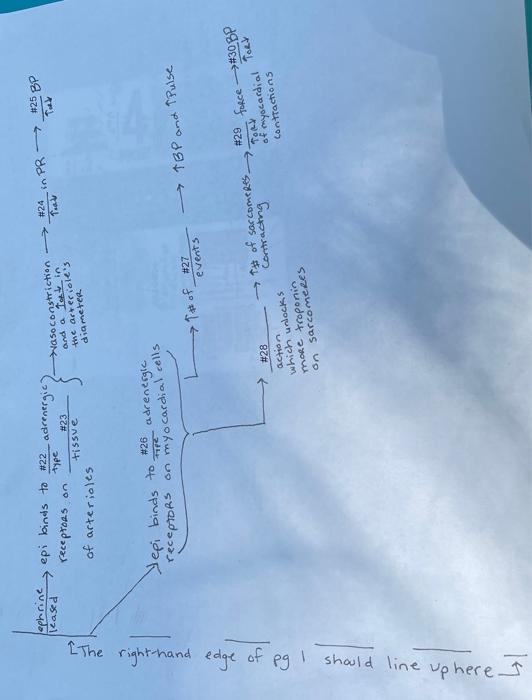 ephrine
leased
→ epi binds to #22 adrenergic
type
receptors on #23
tissue
of arterioles
→ vasoconstriction
and a ↑or↓ in
the arteriole's
diameter
→ #24 in PR
↑or↓
→ #25 BP
↑or↓
epi binds to #26 adrenergic
type
receptors on myocardial cells
→ ↑ # of #27
events
→ ↑BP and ↑Pulse
→ #28
action
which unlocks
more troponin
on sarcomeres
→ ↑# of sarcomeres
contracting
→ #29 force
↑or↓
of myocardial
contractions
→ #30 BP
↑or↓
↑ The right-hand edge of pg 1 should line up here ↑